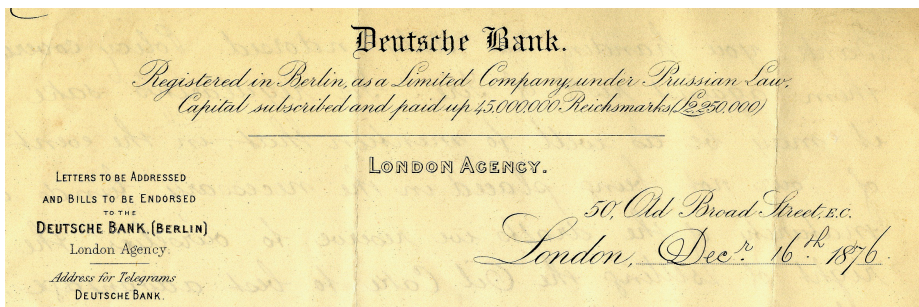 Deutsche Bank.
Registered in Berlin, as a Limited Company, under Prussian Law.
Capital subscribed and paid up 45,000,000 Reichsmarks (£2,250,000)
LONDON AGENCY.
LETTERS TO BE ADDRESSED
AND BILLS TO BE ENDORSED
TO THE
DEUTSCHE BANK, (BERLIN)
London Agency.
Address for Telegrams
DEUTSCHE BANK.
50, Old Broad Street, E.C.
London, Decr 16th 1876.